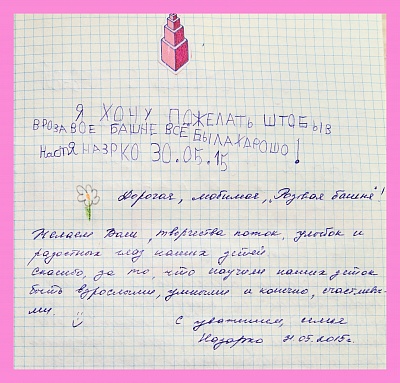 Я ХОЧУ ПОЖЕЛАТЬ ШТОБЫВ
ВРОЗАВОЕ БАШНЕ ВСЁ БЫЛАХДРОШО!
НАСТЯ НАЗРКО 30.05.15
Дорогая, любимая, „Розвая башне"!
Желаем Вам, творчества поток, улыбок и
радостных глаз наших детей
спасибо, за то, что научили наших деток
быть взрослыми, умными и конечно, счастливы-
ми.
С уважением, семья
Назарко 31.05.2015г.